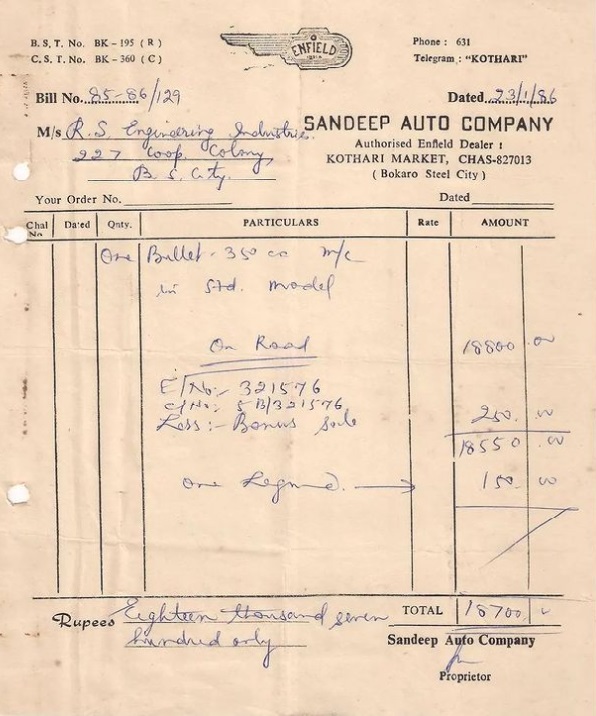 B. S. T. No. BK - 195 ( R )
C. S. T. No. BK - 360 ( C )
ENFIELD
INDIA
Phone : 631
Telegram : "KOTHARI"
Bill No. 85-86/129
Dated 23/1/86
M/s R. S. Engineering Industries.
227 Coop. Colony,
B. S. City.
SANDEEP AUTO COMPANY
Authorised Enfield Dealer :
KOTHARI MARKET, CHAS-827013
( Bokaro Steel City )
Your Order No.
Dated
Chal No. Dated Qnty. PARTICULARS Rate AMOUNT
One Bullet - 350 cc m/c
in Std. model
On Road 18800 .00
E/No:- 321576
C/No:- 5 B/321576
Less:- Bonus sale 250. 00
18550 .00
One Legend. → 150. 00
Rupees Eighteen thousand seven
hundred only
TOTAL 18700
Sandeep Auto Company
Proprietor